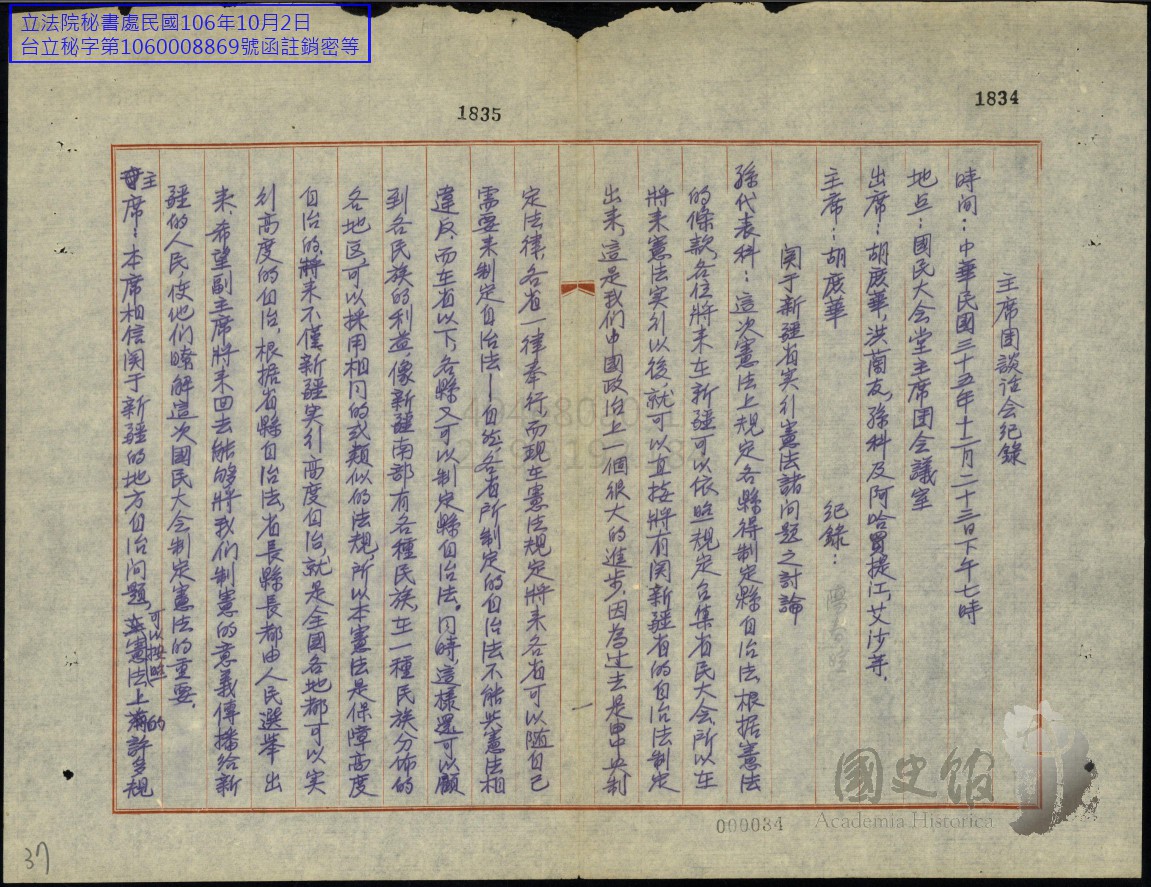 立法院秘書處民國106年10月2日
台立秘字第1060008869號函註銷密等
1834
1835
主席団談话会纪錄
時间：中華民國三十五年十二月二十三日下午七時
地点：國民大会堂主席団会議室
出席：胡庶華，洪蘭友，孫科及阿哈買提江，艾沙等，
主席：胡庶華 纪錄：
関于新疆省实行憲法諸问題之討論
孫代表科：這次憲法上規定各縣得制定縣自治法，根据憲法
的條款，各位將来在新疆可以依照規定召集省民大会，所以在
將来憲法实行以後，就可以直接將有関新疆省的自治法制定
出来，這是我们中國政治上一個很大的進步，因為过去是由中央制
一
定法律，各省一律奉行，而现在憲法規定將来各省可以随自己
需要来制定自治法——自然各省所制定的自治法不能与憲法相
違反，而在省以下，各縣又可以制定縣自治法。同時，這樣還可以顧
到各民族的利益，像新疆南部有各種民族，在一種民族分佈的
各地区，可以採用相同的或類似的法規，所以本憲法是保障高度
自治的，將来不僅新疆实行高度自治，就是全國各地都可以实
行高度的自治，根据省縣自治法，省長縣長都由人民選举出
来，希望副主席將来回去能够將我们制憲的意義傳播给新
疆的人民，使他们瞭解這次國民大会制定憲法的重要，
主席：本席相信関于新疆的地方自治问題，可以按照憲法上的許多規
000034
國史館
Academia Historica
37